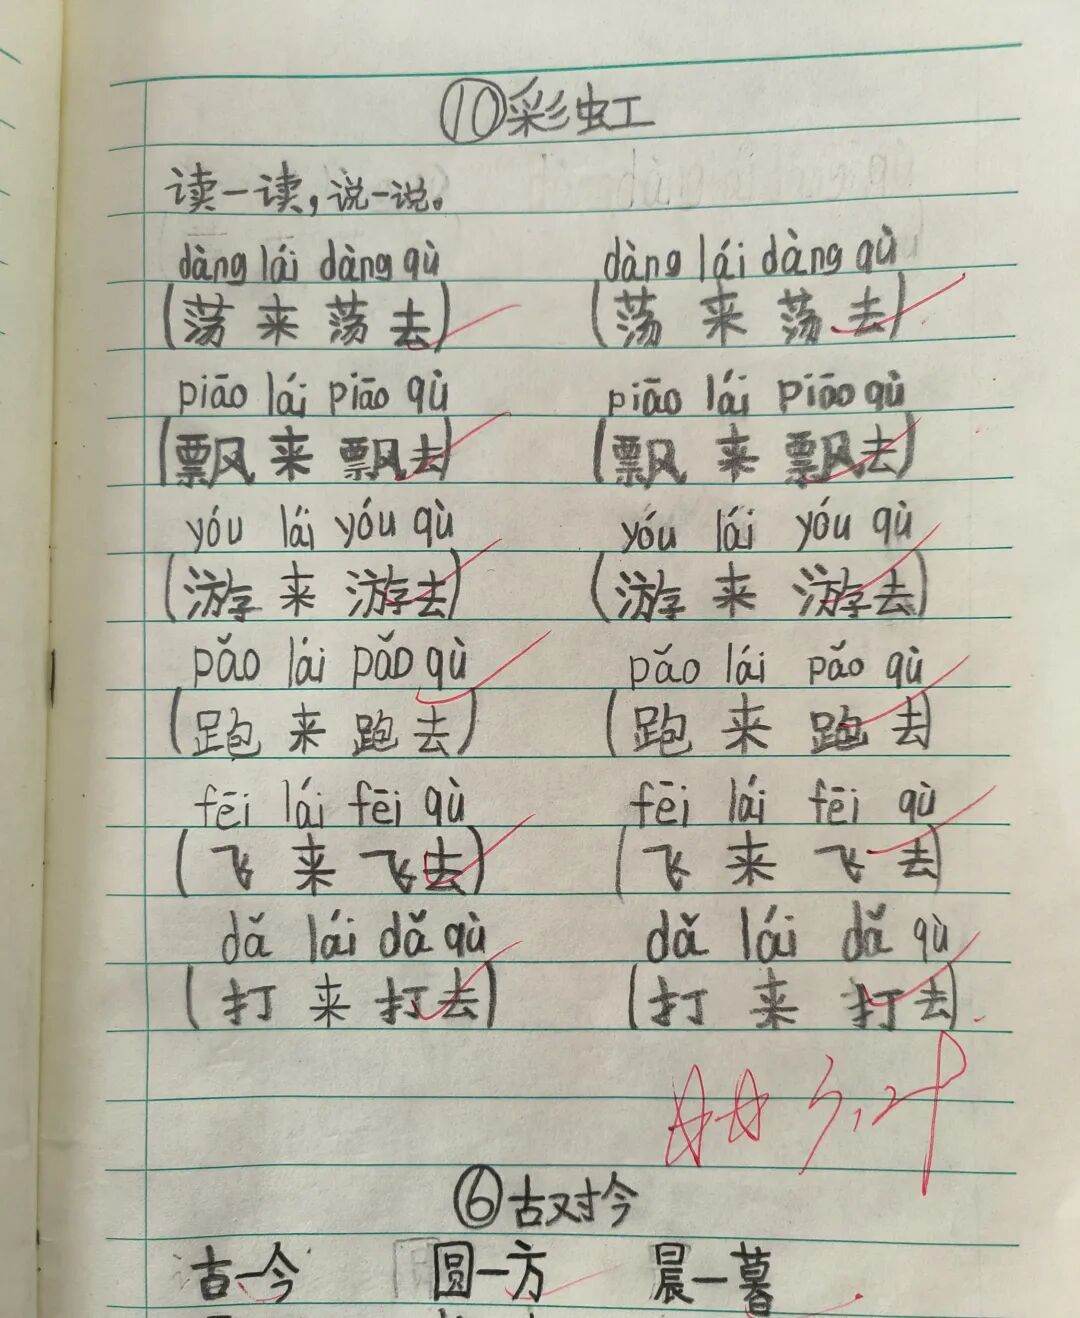 ⑩彩虹
读一读,说一说。
dàng lái dàng qù dàng lái dàng qù
(荡来荡去) (荡来荡去)
piāo lái piāo qù piāo lái piāo qù
(飘来飘去) (飘来飘去)
yóu lái yóu qù yóu lái yóu qù
(游来游去) (游来游去)
pǎo lái pǎo qù pǎo lái pǎo qù
(跑来跑去) (跑来跑去
fēi lái fēi qù fēi lái fēi qù
(飞来飞去) (飞来飞去)
dǎ lái dǎ qù dǎ lái dǎ qù
(打来打去) (打来打去)
⑥古对今
古一今 圆一方 晨一暮